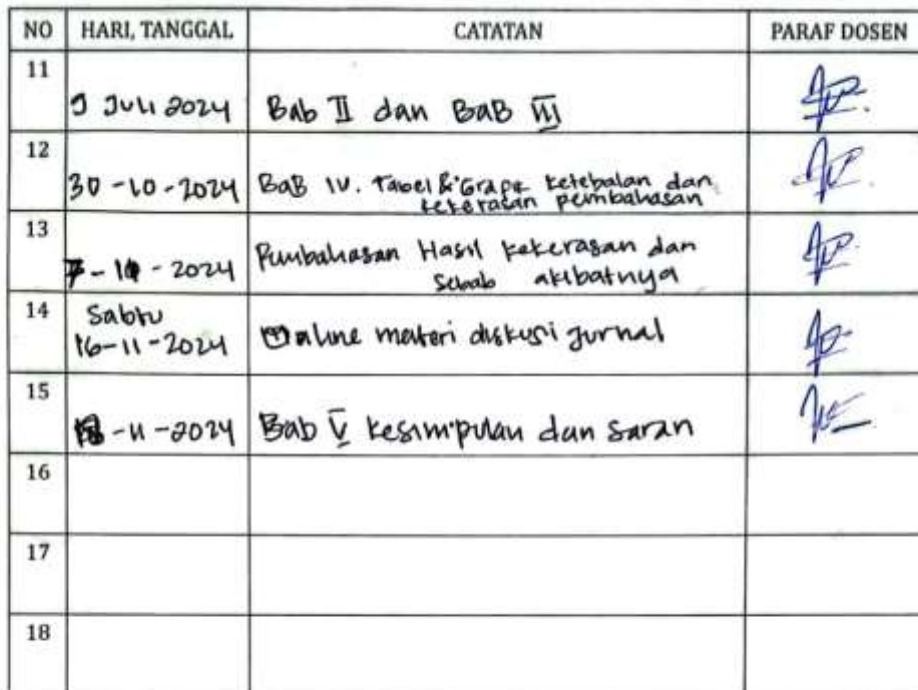 NO HARI, TANGGAL CATATAN PARAF DOSEN
11
9 Juli 2024 Bab II dan BAB III
12
30-10-2024 BaB IV. Tabel & Grafik ketebalan dan
kekerasan pembahasan
13
- 2024 Pembahasan Hasil kekerasan dan
Sebab akibatnya
14
Sabtu
16-11-2024 Online materi diskusi jurnal
15
-11-2024 Bab V kesimpulan dan saran
16
17
18